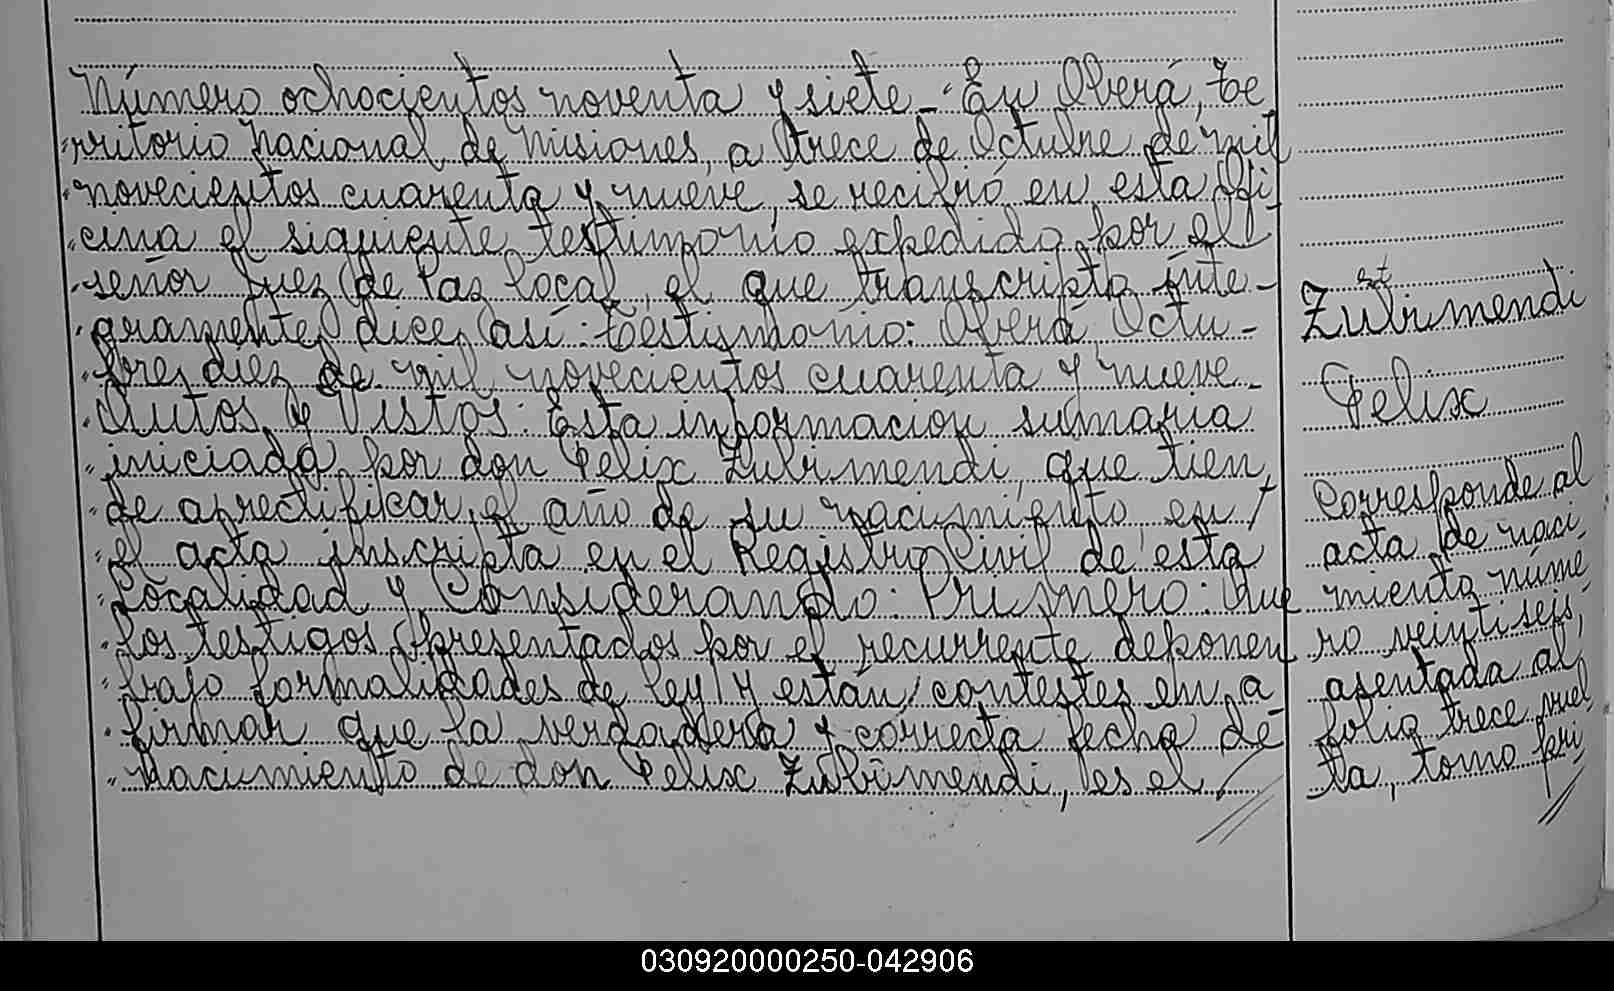 Número ochocientos noventa y siete - En Oberá, Te
rritorio Nacional de Misiones, a trece de Octubre de mil
novecientos cuarenta y nueve, se recibió en esta Ofi
cina el siguiente testimonio expedido por el
señor Juez de Paz local, el que transcripto ínte-
gramente dice así: Testimonio: Oberá, Octu-
bre diez de mil novecientos cuarenta y nueve
Autos y Vistos: Esta información sumaria
iniciada por don Felix Zubimendi, que tien
de a rectificar el año de su nacimiento en
el acta inscripta en el Registro Civil de esta
Localidad y Considerando: Primero: Que
los testigos presentados por el recurrente deponen
bajo formalidades de ley y están contestes en a
firmar que la verdadera y correcta fecha de
nacimiento de don Felix Zubimendi, es el
Zubimendi
Felix
Corresponde al
acta de naci
miento núme
ro veintiseis,
asentada al
folio trece vuel
ta, tomo pri
030920000250-042906